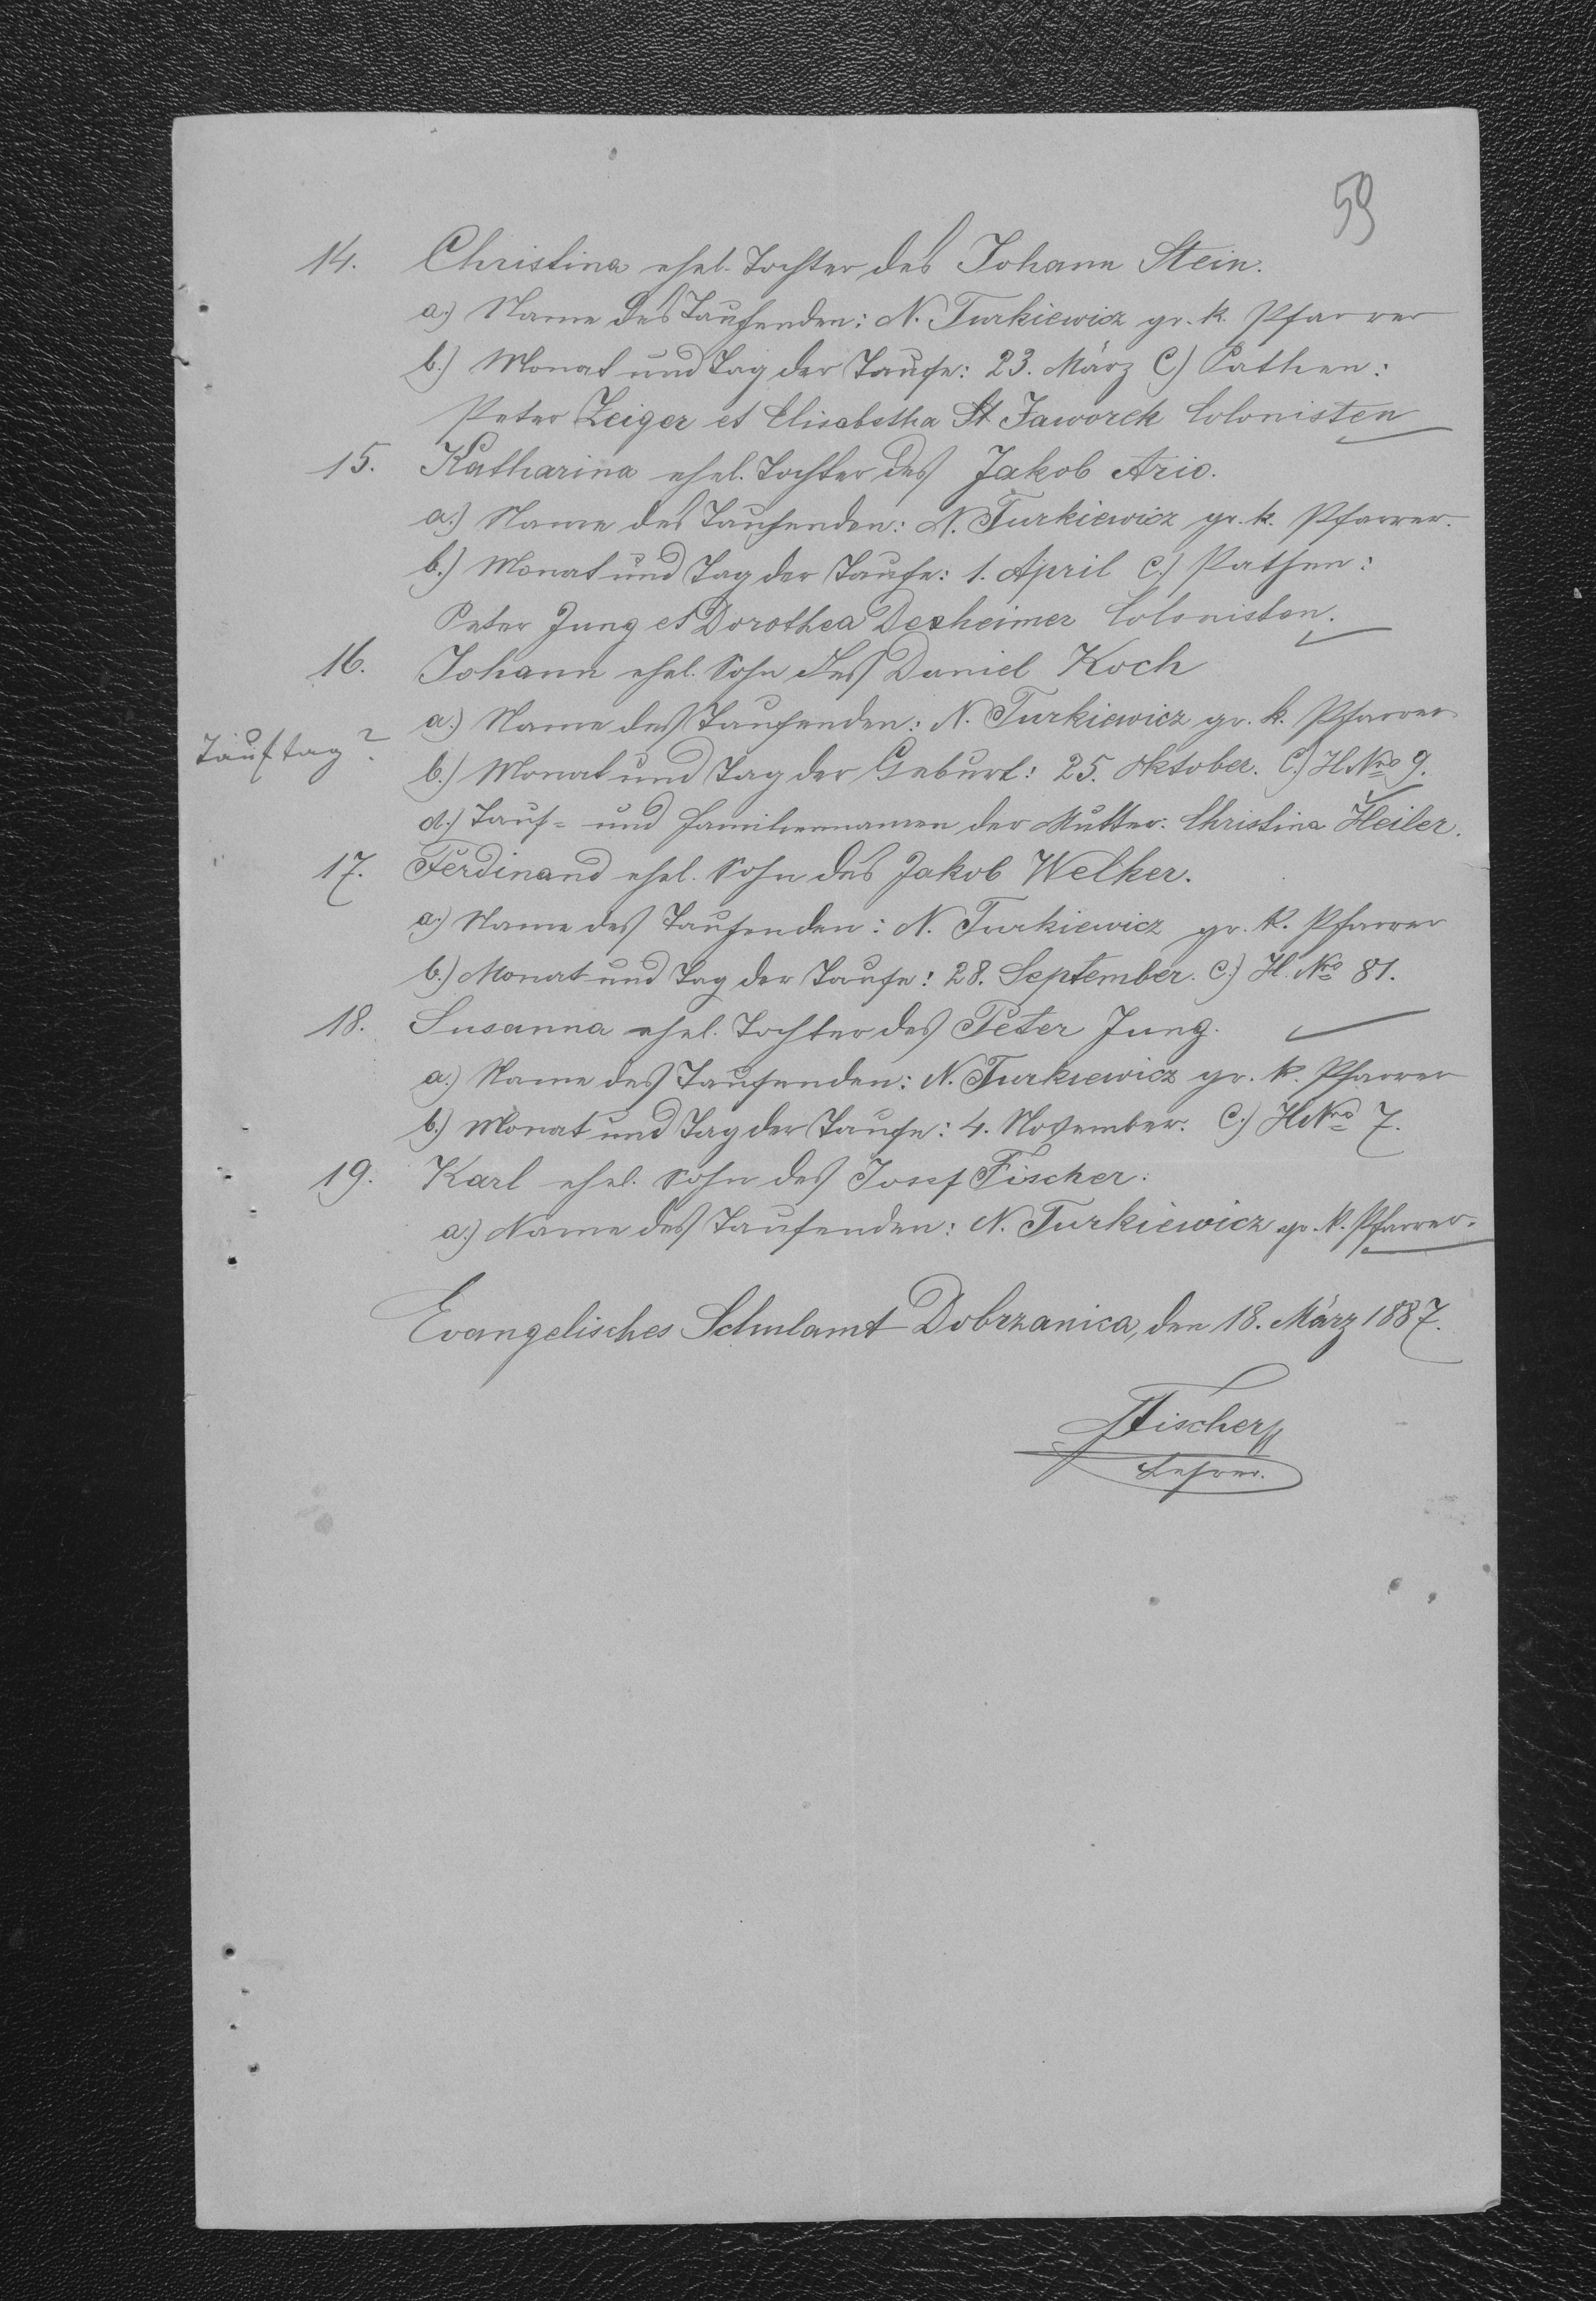 59
14. Christina ehel. Tochter des Johann Stein.
a.) Name des Taufenden: N. Turkiewicz gr. k. Pfarrer
b.) Monat und Tag der Taufe: 23. März C.) Pathen:
Peter Zeiger et Elisabetha Jaworek Colonisten
15. Katharina ehel. Tochter des Jakob Ario.
a.) Name des Taufenden: N. Turkiewicz gr. k. Pfarrer.
b.) Monat und Tag der Taufe: 1. April C.) Pathen:
Peter Jung et Dorothea Dexheimer Colonisten.
16. Johann ehel. Sohn des Daniel Koch
a.) Name des Taufenden: N. Turkiewicz gr. k. Pfarrer
Tauftag?
b.) Monat und Tag der Geburt: 25. Oktober. C.) H Nro 9.
d.) Tauf- und Familiennamen der Mutter: Christina Heiler.
17. Ferdinand ehel. Sohn des Jakob Welker.
a.) Name des Taufenden: N. Turkiewicz gr. k. Pfarrer
b.) Monat und Tag der Taufe: 28. September. C.) H. Nro 81.
18. Susanna ehel. Tochter des Peter Jung.
a.) Name des Taufenden: N. Turkiewicz gr. k. Pfarrer
b.) Monat und Tag der Taufe: 4. November. C.) H Nro 7.
19. Karl ehel. Sohn des Josef Fischer:
a.) Name des Taufenden: N. Turkiewicz gr. k. Pfarrer.
Evangelisches Schulamt Dobrzanica, den 18. März 1887.
Fischer
Lehrer.